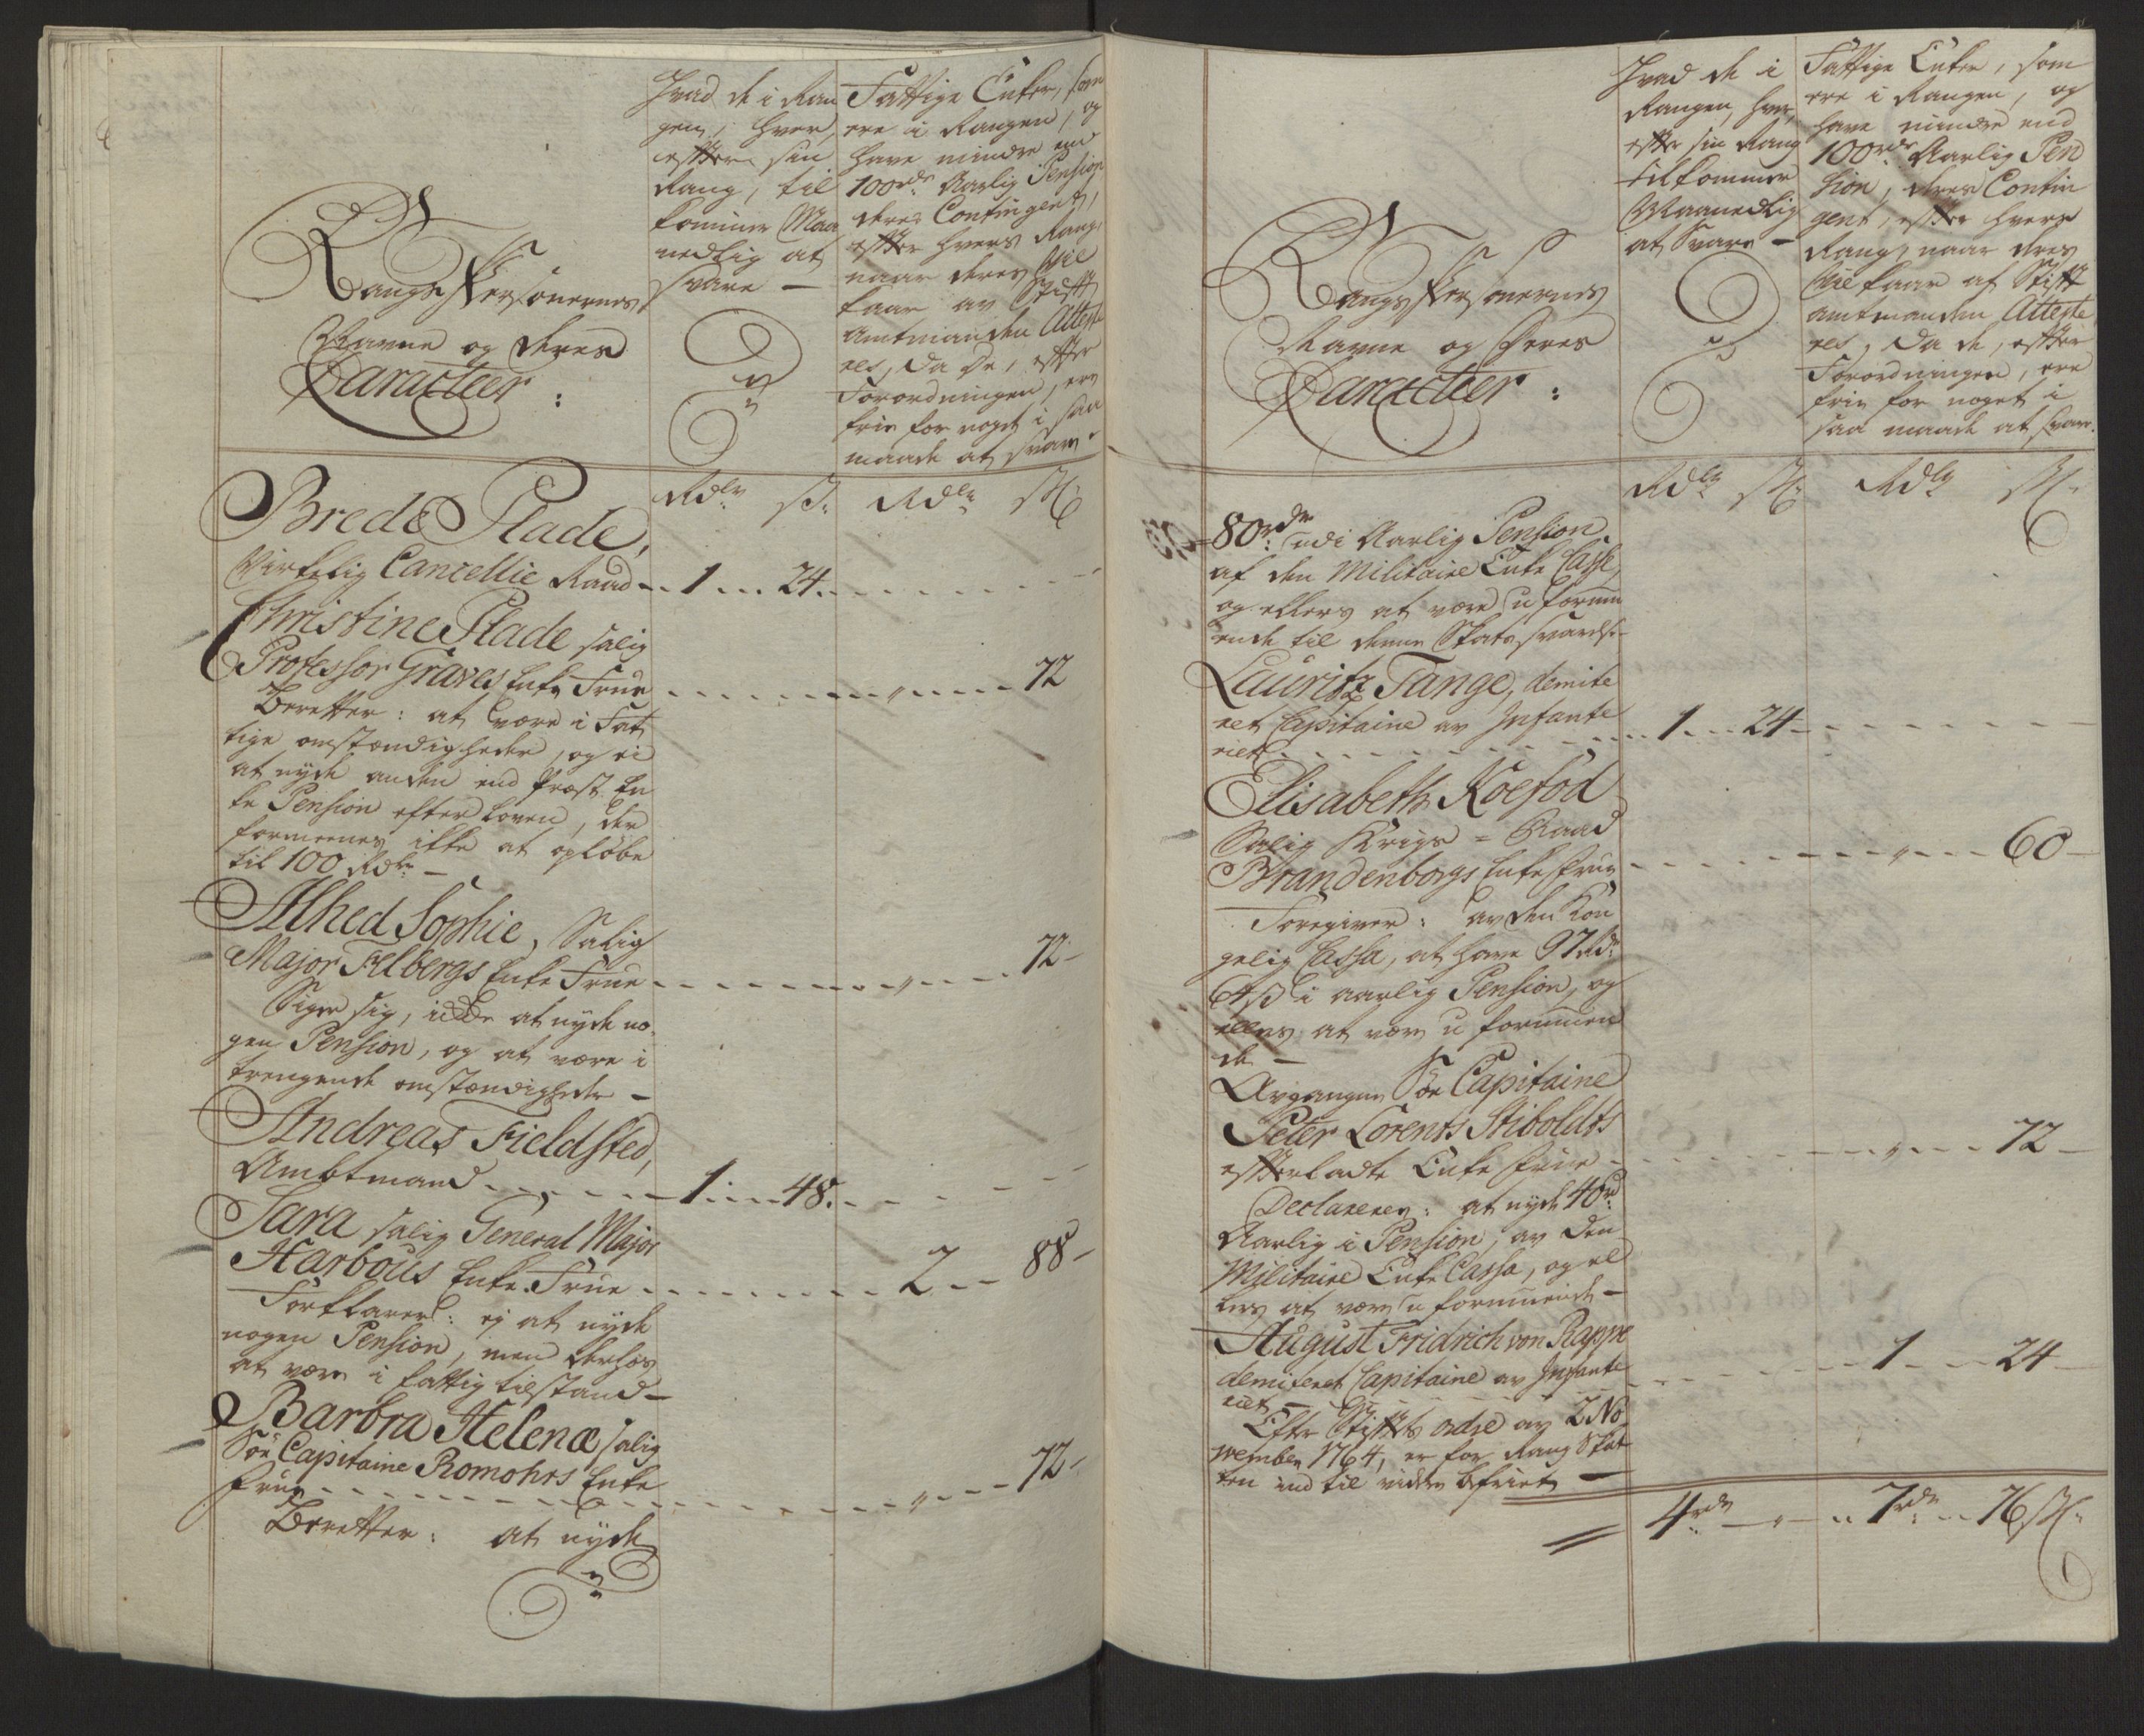 Rangs Personernes
Navne og deres
Caracteer :
Hvad de i Ran
gen, hver,
efter sin
Rang, til
kommer Maa
nedlig at
svare —
Fattige Enker, som
ere i Rangen, og
have mindre end
100rdr Aarlig Pension
deres Contingent,
efter hvers Rang,
naar deres Vil
kaar av Stift
Amtmanden Atteste
res, da de, efter
Forordningen, ere
frie for noget i saa
maade at svare
Rdlr ß. Rdlr ß.
Brede Plade,
Virkelig Cancellie Raad - 1 - 24.
Christine Plade salig
Professor Graves Enke Frue - 72
Beretter : at være i Fat
tige omstændigheder, og ei
at nyde anden end Præste En
ke Pension efter Loven, der
formeenes ikke at opløbe
til 100 Rdlr —
Alhed Sophie, Salig
Major Felbergs Enke Frue - 72 -
Siger sig, icke at nyde no-
gen Pension, og at være i
trengende omstændigheder —
Andreas Fieldsted,
Ambtmand - 1 - 48.
Sara salig General Major
Harbous Enke Frue - 2 - 88 -
Forklarer : ej at nyde
nogen Pension, men derhos
at være i fattig tilstand —
Barbra Helenæ salig
Söe Capitaine Romohrs Enke
Frue - 72 -
Beretter : at nyde
Rangs Personernes
Navne og Deres
Caracteer :
Hvad de i
Rangen, hver,
efter sin Rang
tilkommer
Maanedlig
at Svare —
Fattige Enker, som
ere i Rangen, og
have mindre end
100rdr Aarlig Pen
sion, deres Contin
gent, efter hvers
Rang, naar deres
Vilkaar af Stift
amtmanden Atteste
res, da de, efter
Forordningen, ere
frie for noget i
saa maade at svare.
Rdlr ß. Rdlr ß.
80rdr udi Aarlig Pension
af den Militaire Enke Casse,
og ellers at være u formu
ende til denne Skats svarelse
Lauritz Tange, demite
ret Capitaine av Infante
riet - 1 - 24 -
Elisabeth Koefod
Salig Krigs = Raad
Brandenborgs Enke Frue - 60 -
Foregiver : av den Kon
gelig Cassa, at have 97 rdr
64 ß i aarlig Pension, og
ellers at være u formuen
de —
Avgangne Söe Capitaine
Peter Lorents Stiboldts
efterladte Enke Frue - 72 -
Declarerer : at nyde 40rd
Aarlig i Pension, av den
Militaire Enke Cassa, og el
lers at være u formuende —
August Fridrich von Rappe
demiteret Capitaine av Infante
riet - 1 - 24 -
Efter Stifts ordre av 2 No
vember 1764, er for Rang Skat
ten ind til videre befriet —
4rdr - " - 7rdr - 76 ß.